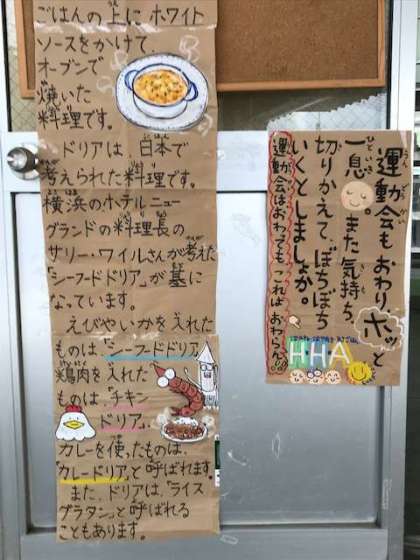 ごはんの上にホワイト
ソースをかけて、
オーブンで
焼いた
料理です。
ドリアは日本で
考えられた料理です。
横浜のホテルニュー
グランドの料理長の
サリー・ワイルさんが考えた
「シーフードドリア」が基に
なっています。
えびやいかを入れた
ものは、「シーフードドリア」
鶏肉を入れた
ものは、「チキン
ドリア」、
カレーを使ったものは、
「カレードリア」と呼ばれます。
また、ドリアは、「ライス
グラタン」と呼ばれる
こともあります。
運動会もおわりホッと
一息。また気持ち
切りかえて、ぼちぼち
いくとしましょか。
運動会はおわっても、これはおわらん!
HHA